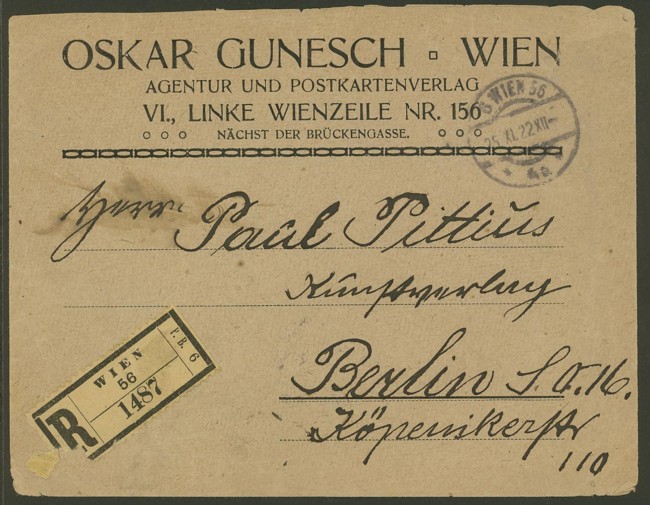 OSKAR GUNESCH ▫ WIEN
AGENTUR UND POSTKARTENVERLAG
VI., LINKE WIENZEILE NR. 156
○ ○ ○ NÄCHST DER BRÜCKENGASSE. ○ ○ ○
WIEN 56
25.XI.22.XII-
* 4a *
Herrn Paul Pittius
Kunstverlag
Berlin S.O.16.
Köpenikerstr
110
P. B. 6
WIEN
56
1487
R